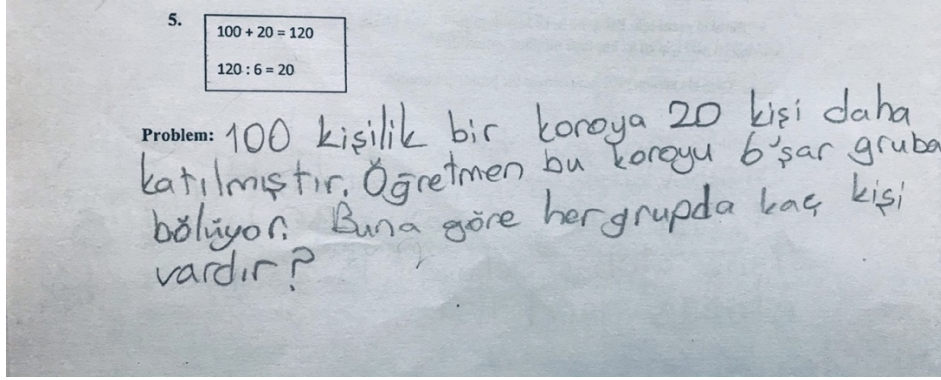 5.
100 + 20 = 120
120 : 6 = 20
Problem: 100 kişilik bir koroya 20 kişi daha
katılmıştır. Öğretmen bu koroyu 6'şar gruba
bölüyor. Buna göre her grupda kaç kişi
vardır?